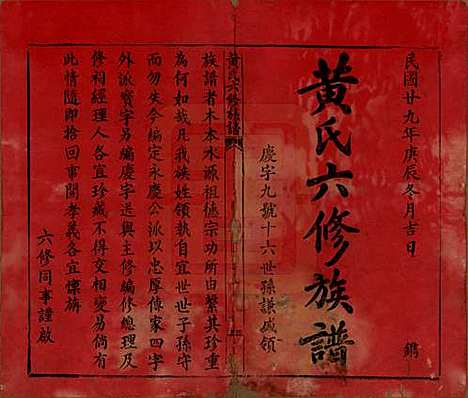 民國廿九年庚辰冬月吉日
黃氏六修族譜
鐫
慶字九號十六世孫謙威領
黃氏六修族譜
族譜者木本水源祖德宗功所由繫其珍重
為何如哉凡我族姓領執自宜世世子孫守
而勿失今編定永慶公派以忠厚傳家四字
外派寶字另編慶字送與主修編修總理及
修祠經理人各宜珍藏不得交相變易倘有
此情隨即捨回事關孝義各宜懍旃
六修同事謹啟